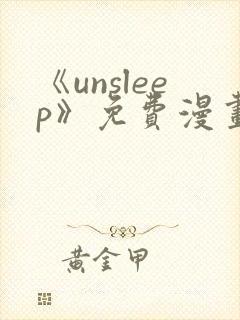 《unslee
p》免費漫畫
黃金甲